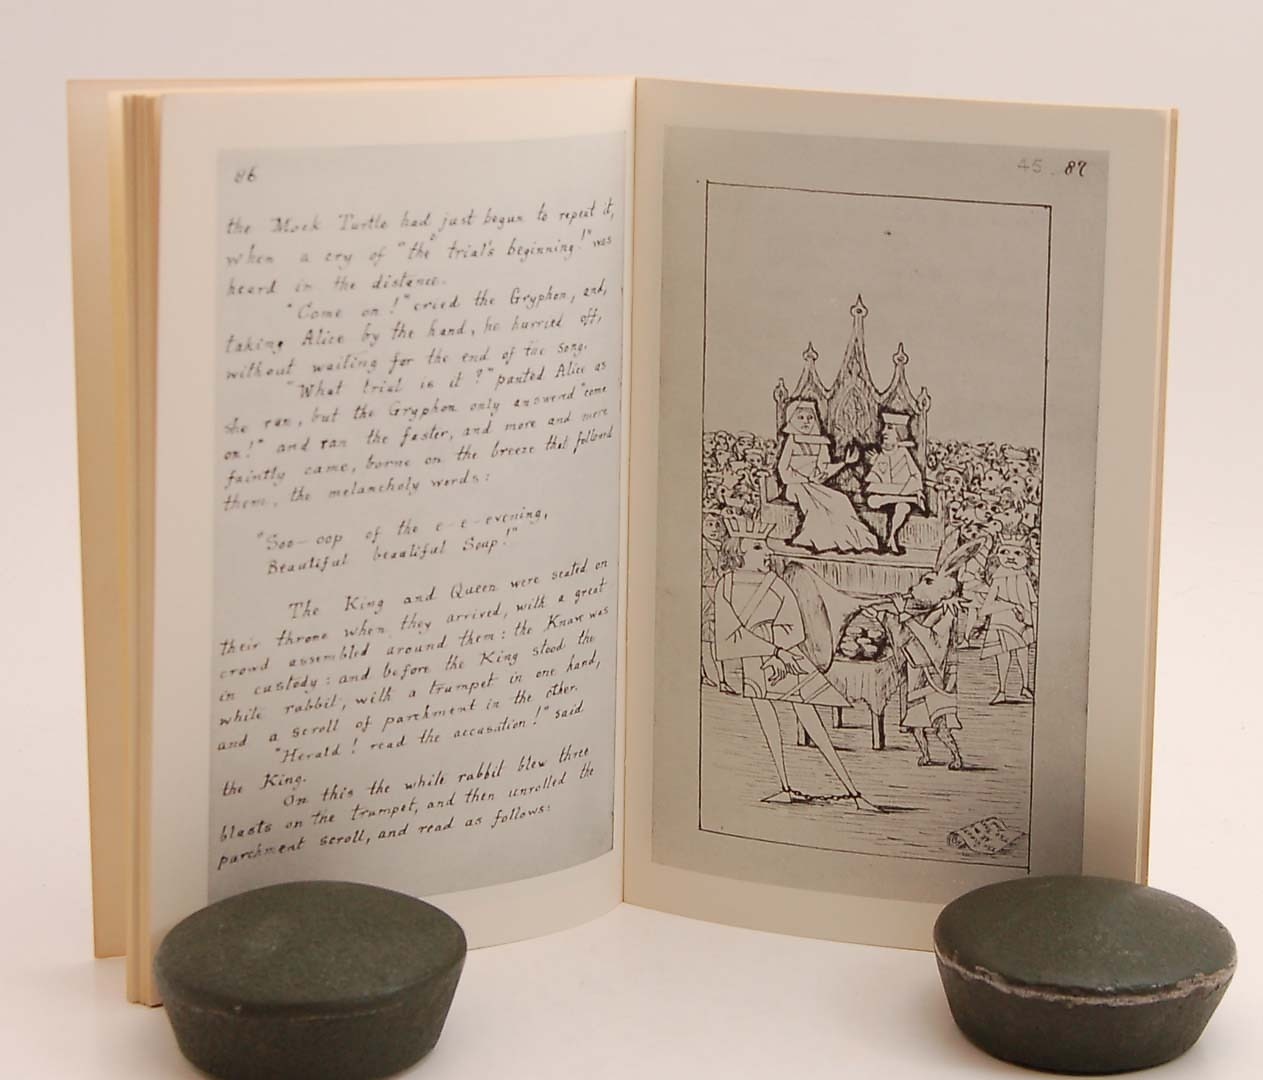 86
the Mock Turtle had just begun to repeat it,
when a cry of "the trial's beginning!" was
heard in the distance.
"Come on!" cried the Gryphon, and,
taking Alice by the hand, he hurried off,
without waiting for the end of the song.
"What trial is it?" panted Alice as
she ran, but the Gryphon only answered "come
on!" and ran the faster, and more and more
faintly came, borne on the breeze that followed
them, the melancholy words:
"Soo-oop of the e-e-evening,
Beautiful beautiful Soup!"
The King and Queen were seated on
their throne when they arrived, with a great
crowd assembled around them: the Knave was
in custody: and before the King stood the
white rabbit, with a trumpet in one hand,
and a scroll of parchment in the other.
"Herald! read the accusation!" said
the King.
On this the white rabbit blew three
blasts on the trumpet, and then unrolled the
parchment scroll, and read as follows:
45. 87